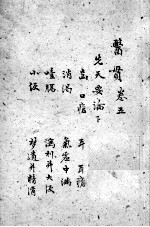 醫貫卷五
先天要論下
齒 口瘡 耳 耳瘡
消渴 氣虛中滿
噎膈 瀉利并大便
小便 夢遺并精滑